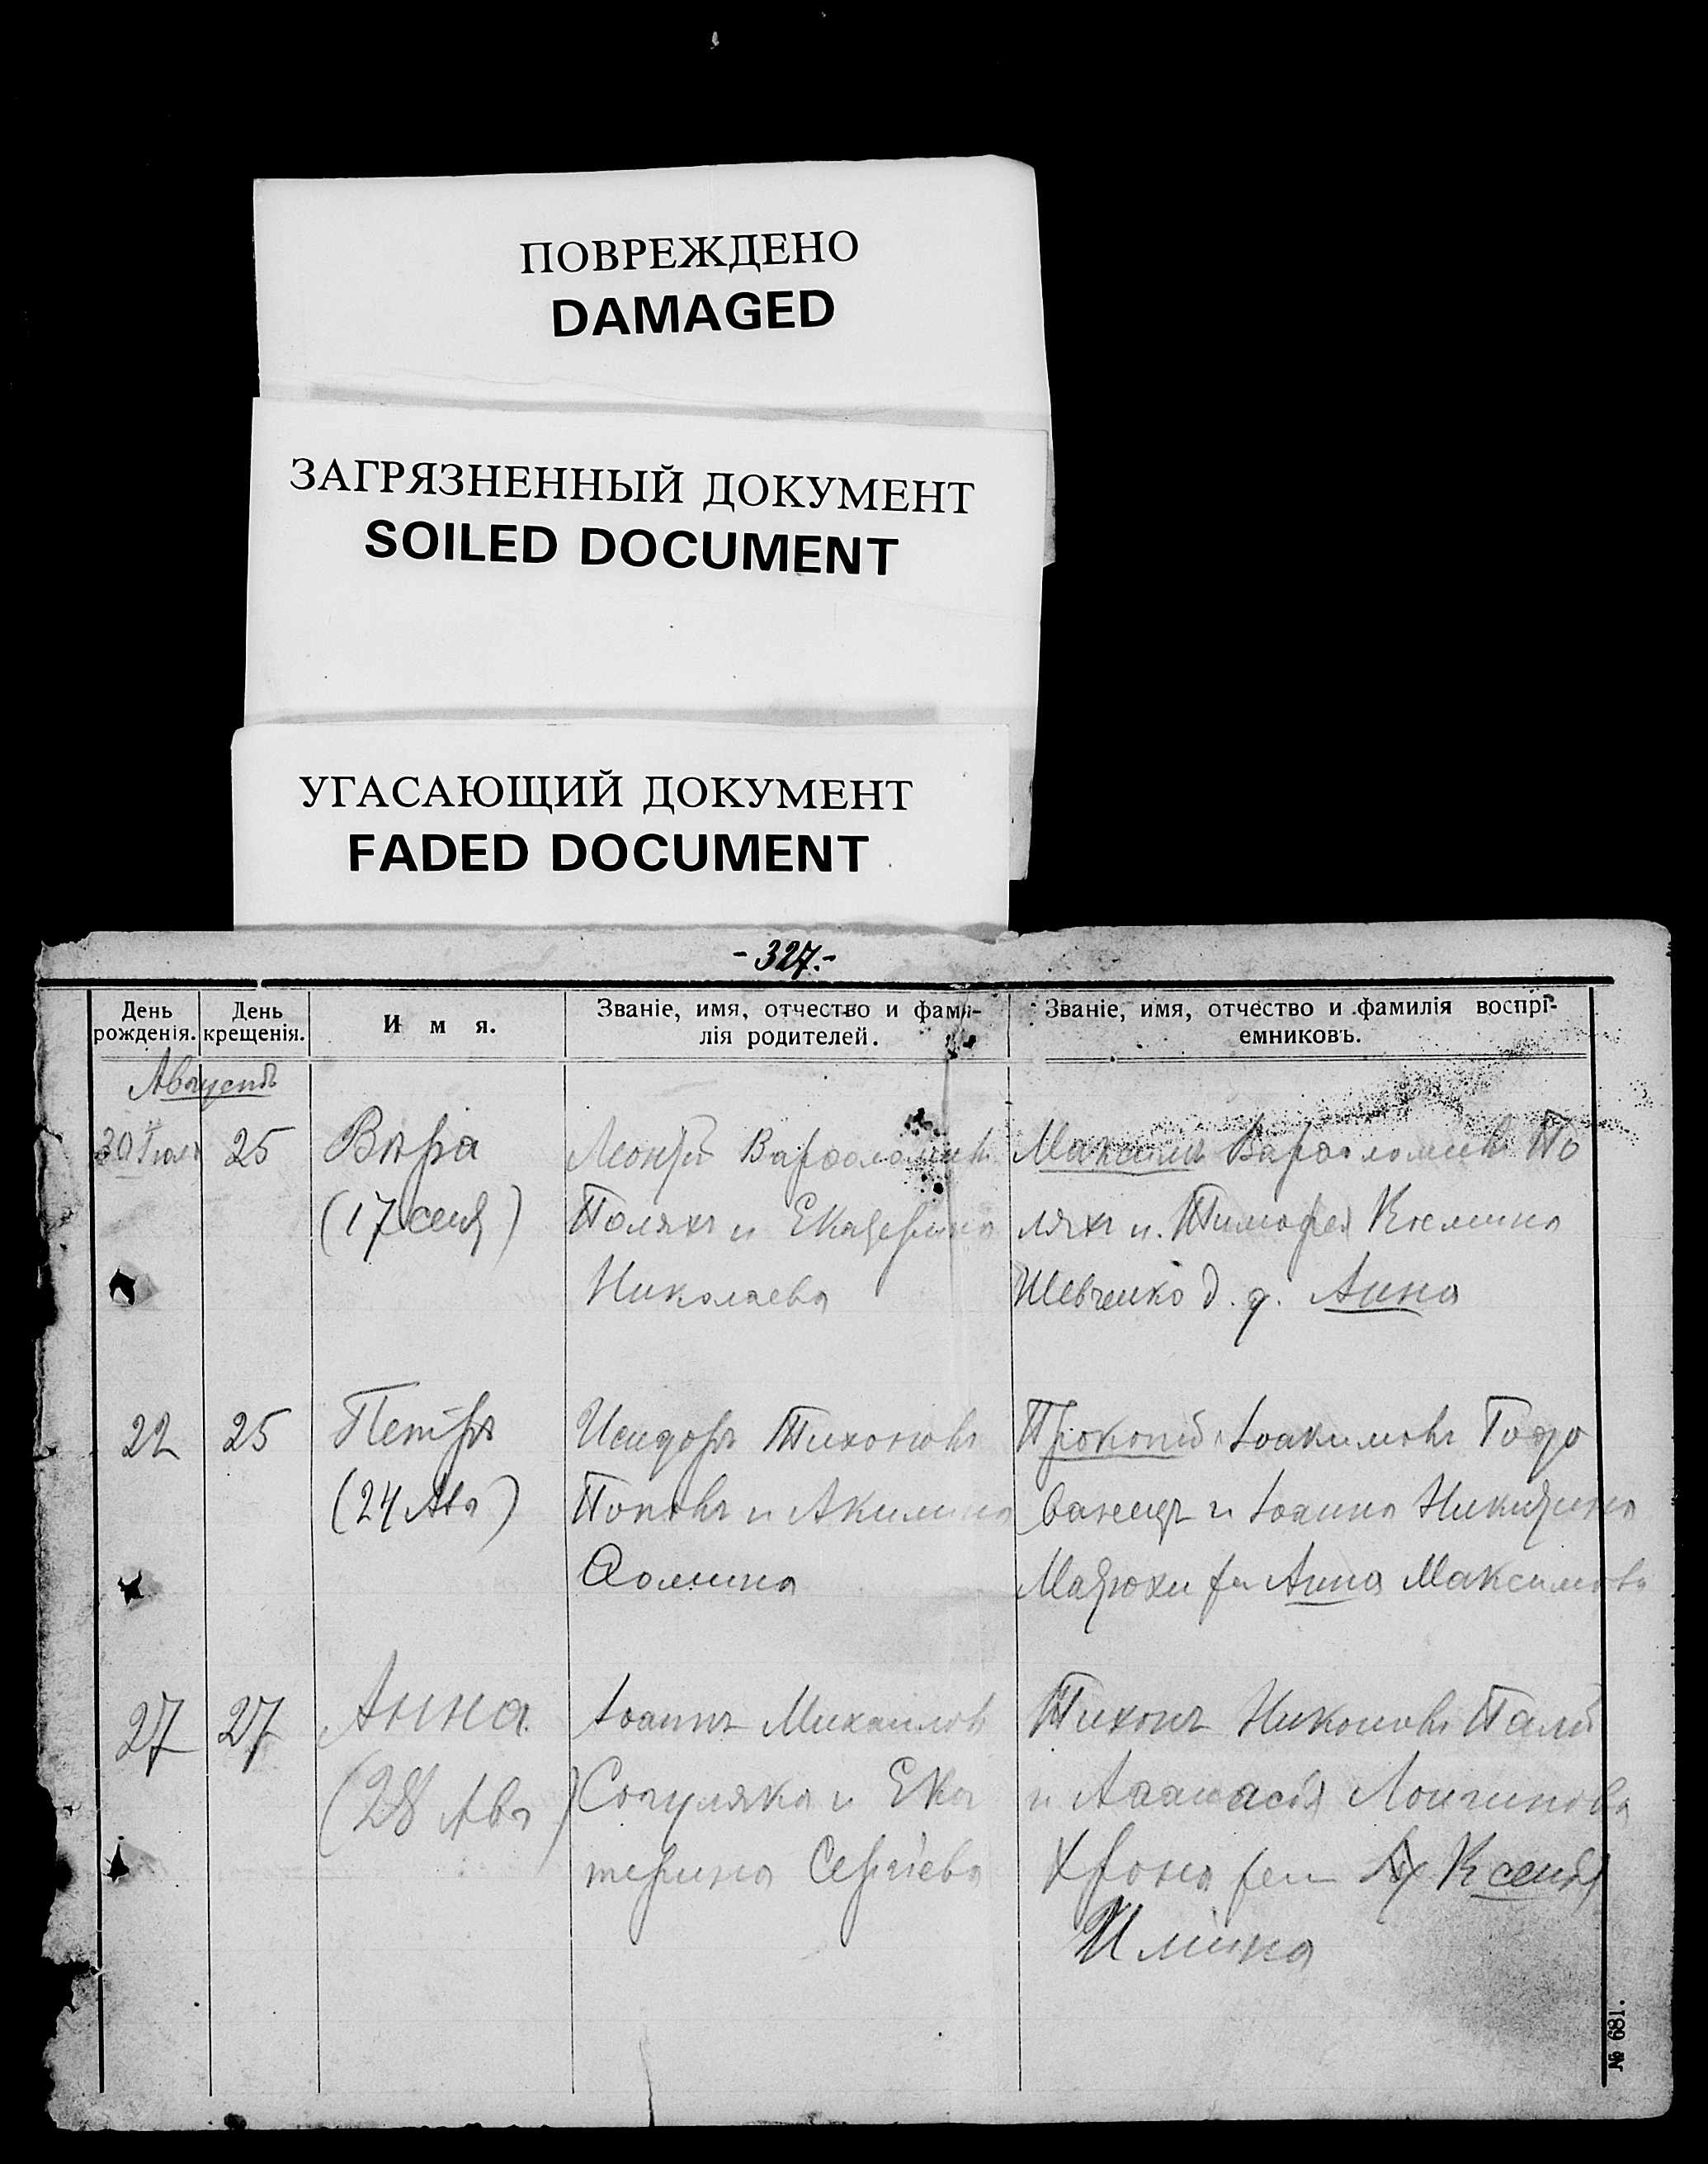 ПОВРЕЖДЕНО
DAMAGED
ЗАГРЯЗНЕННЫЙ ДОКУМЕНТ
SOILED DOCUMENT
УГАСАЮЩИЙ ДОКУМЕНТ
FADED DOCUMENT
- 327.-
День рожденія.
День крещенія.
И м я.
Званіе, имя, отчество и фами-
лія родителей.
Званіе, имя, отчество и фамилія воспрі-
емниковъ.
Августъ
30 Іюля 25 Вѣра
(17 сент)
Леонтій Варѳоломеевъ
Полякъ и Екатерина
Николаева
Максимъ Варѳоломеевъ По
лякъ и. Тимофея Космина
Шевченко д. д. Анна
22 25 Петръ
(24 Авг)
Исидоръ Тихоновъ
Поповъ и Акилина
Ѳомина
Прокопій Іоакимовъ Горо
ванецъ и Іоанна Никитина
Матюхи Анна Максимова
27 27 Анна
(28 Авг)
Іоаннъ Михаиловъ
и Ека
терина Сергіева
Тихонъ Никоновъ Палій
и Аѳанасія Лонгинова
Хрона Ксенія
Иліина
№ 681.